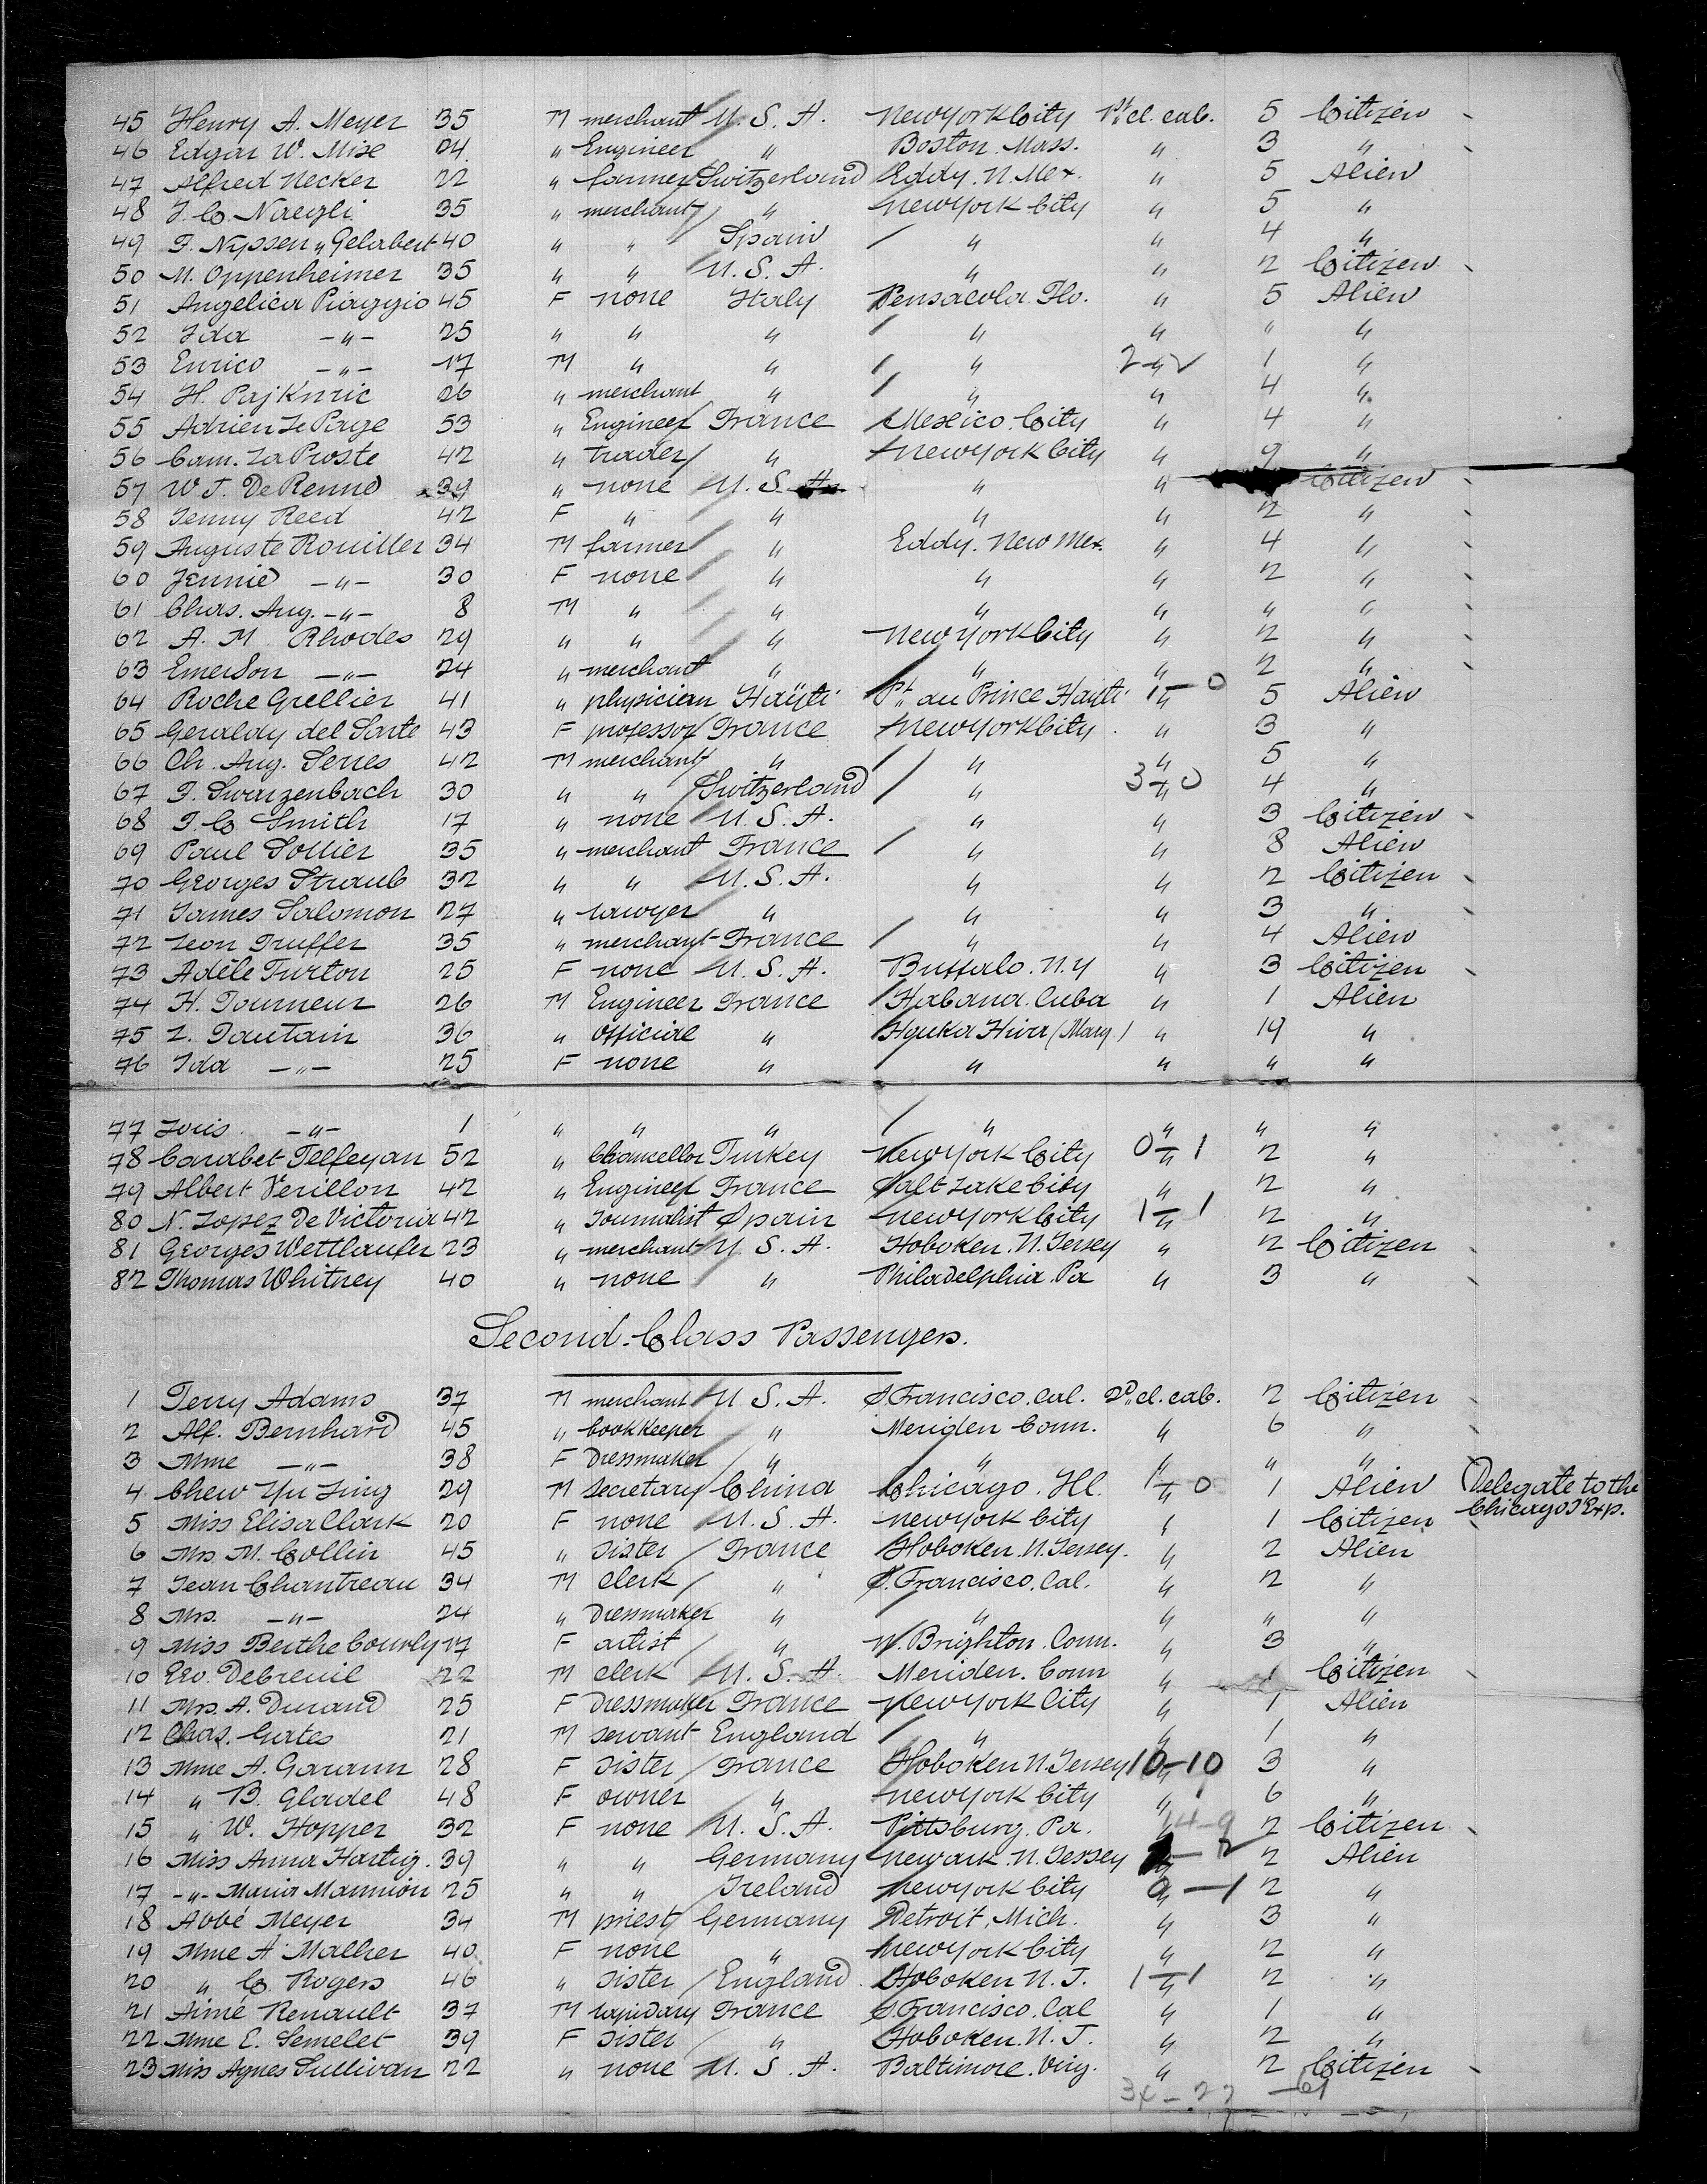 45 Henry A. Meyer 35 M merchant U. S. A. New York City 1st cl. cab. 5 Citizen
46 Edgar W. Mixe 24 " Engineer " Boston. Mass. " 3 "
47 Alfred Necker 22 " farmer Switzerland Eddy. N. Mex. " 5 Alien
48 J. C. Naegli 35 " merchant " New York City " 5 "
49 F. Nyssen y Gelabert 40 " " Spain " " 4 "
50 M. Oppenheimer 35 " " U. S. A. " " 2 Citizen
51 Angelica Piaggio 45 F none Italy Pensacola Flo. " 5 Alien
52 Ida -"- 25 " " " " " " "
53 Enrico -"- 17 M " " " 2-2 " 1 "
54 H. Pajkuric 26 " merchant " " " 4 "
55 Adrien Le Page 53 " Engineer France Mexico City " 4 "
56 Cam. La Proste 42 " trader " New York City " 9 "
57 W. J. De Renne 39 " none U. S. A. " " Citizen
58 Jenny Reed 42 F " " " " 2 "
59 Auguste Rouiller 34 M farmer " Eddy. New Mex. " 4 "
60 Jennie -"- 30 F none " " " 2 "
61 Chas. Aug. -"- 8 M " " " " " "
62 A. M. Rhodes 29 " " " New York City " 2 "
63 Emerson -"- 24 " merchant " " " 2 "
64 Roche Grellier 41 " physician Hayti Pt. au Prince Hayti 1-0 " 5 Alien
65 Geraldy del Sarte 43 F professor France New York City " 3 "
66 Ch. Aug. Serres 42 M merchant " " " 5 "
67 F. Swarzenbach 30 " " Switzerland " 3-0 " 4 "
68 F. C. Smith 17 " none U. S. A. " " 3 Citizen
69 Paul Sollier 35 " merchant France " " 8 Alien
70 Georges Straub 32 " " U. S. A. " " 2 Citizen
71 James Salomon 27 " lawyer " " " 3 "
72 Leon Truffer 35 " merchant France " " 4 Alien
73 Adèle Turton 25 F none U. S. A. Buffalo. N. Y " 3 Citizen
74 H. Tourneur 26 M Engineer France Habana. Cuba " 1 Alien
75 L. Tautain 36 " official " Hyuka Hiva (Marq.) " 19 "
76 Ida -"- 25 F none " " " " "
77 Loris. -"- 1 " " " " " " "
78 Carabet Telfeyan 52 " Chancellor Turkey New York City 0-1 " 2 "
79 Albert Verillon 42 " Engineer France Salt Lake City " 2 "
80 N. Lopez De Victoria 42 " Journalist Spain New York City 1-1 " 2 "
81 Georges Wettlaufer 23 " merchant U. S. A. Hoboken. N. Jersey " 2 Citizen
82 Thomas Whitney 40 " none " Philadelphia. Pa " 3 "
Second-Class Passengers.
1 Terry Adams 37 M merchant U. S. A. S. Francisco. Cal. 2d cl. cab. 2 Citizen
2 Alf. Bernhard 45 " bookkeeper " Meriden Conn. " 6 "
3 Mme -"- 38 F Dressmaker " " " " "
4 Chew Yu Ling 29 M secretary China Chicago. Ill. 1-0 " 1 Alien Delegate to the
Chicago's Exp.
5 Miss Elisa Clark 20 F none U. S. A. New York City " 1 Citizen
6 Mrs. M. Collin 45 " Sister France Hoboken. N. Jersey. " 2 Alien
7 Jean Chantreau 34 M Clerk " S. Francisco. Cal. " 2 "
8 Mrs. -"- 24 " Dressmaker " " " " "
9 Miss Berthe Courly 17 F artist " N. Brighton. Conn. " 3 "
10 Geo. Debreuil 22 M Clerk U. S. A. Meriden. Conn " 1 Citizen
11 Mrs. A. Durand 25 F Dressmaker France New York City " 1 Alien
12 Chas. Gates 21 M servant England " " 1 "
13 Mme A. Garann 28 F Sister France Hoboken N. Jersey 10-10 " 3 "
14 " B. Gladel 48 F owner " New York City " 6 "
15 " W. Hopper 32 F none U. S. A. Pittsburg. Pa. 14-9 " 2 Citizen
16 Miss Anna Hartig. 39 " " Germany Newark. N. Jersey -2 " 2 Alien
17 -"- Maria Mannion 25 " " Ireland New York City 0-1 " 2 "
18 Abbé Meyer 34 M priest Germany Detroit, Mich. " 3 "
19 Mme A. Malher 40 F none " New York City " 2 "
20 " C. Rogers 46 " Sister England Hoboken N. J. 1-1 " 2 "
21 Aimé Renault 37 M lapidary France S. Francisco. Cal " 1 "
22 Mme E. Semelet 39 F Sister " Hoboken. N. J. " 2 "
23 Miss Agnes Sullivan 22 " none U. S. A. Baltimore. Virg. " 2 Citizen
34-27 -61